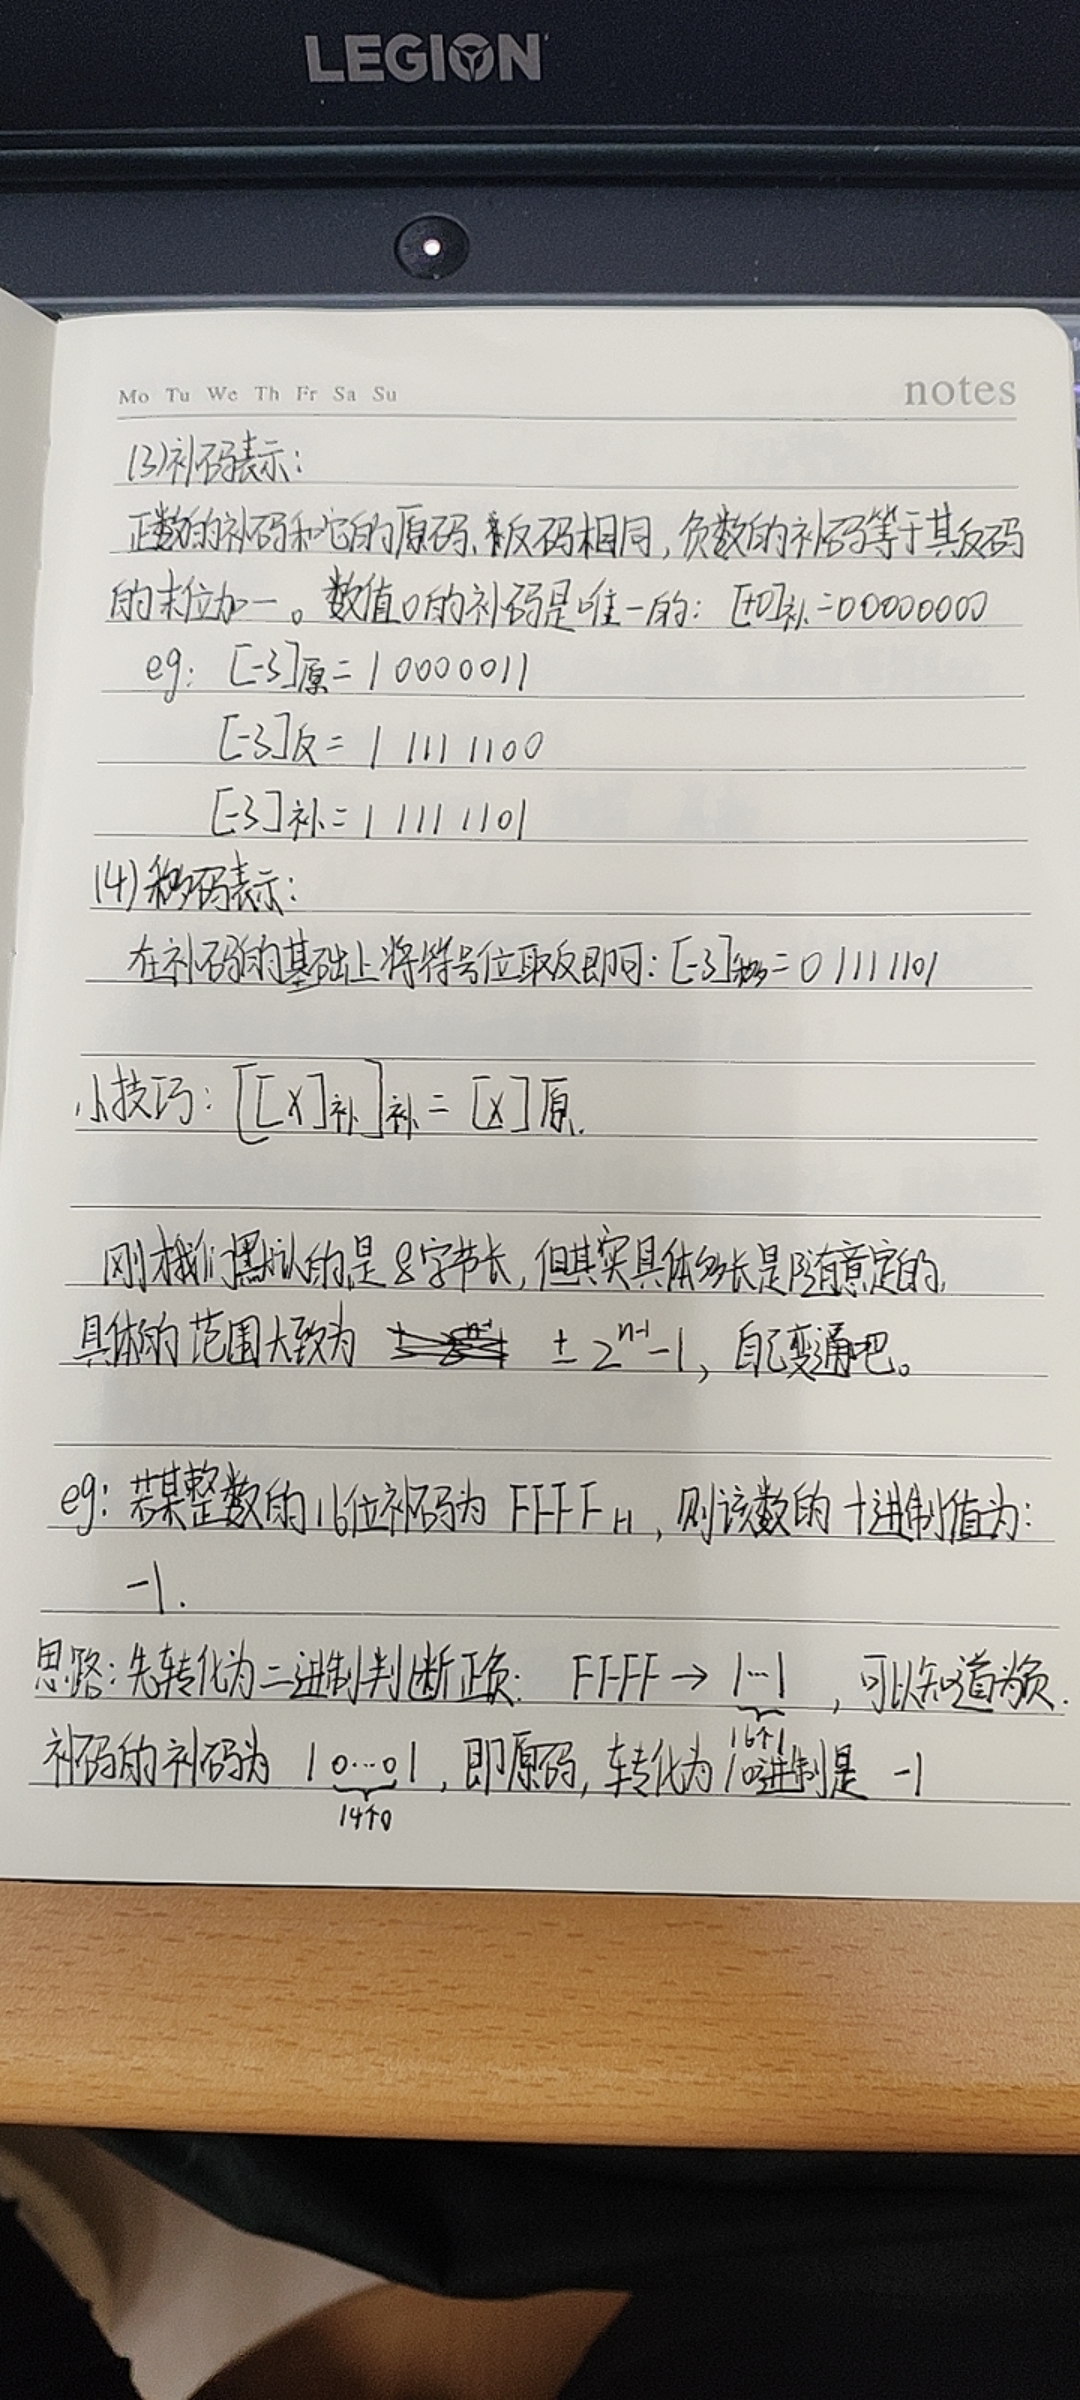 LEGION
Mo Tu We Th Fr Sa Su notes
(3)补码表示：
正数的补码和它的原码、反码相同，负数的补码等于其反码
的末位加一。数值0的补码是唯一的：[+0]补=00000000
eg：[-3]原=1 0000011
[-3]反=1 1111100
[-3]补=1 1111101
(4)移码表示：
在补码的基础上将符号位取反即可：[-3]移=0 1111101
小技巧：[[X]补]补=[X]原.
刚才我们默认的是8字节长，但其实具体多长是随意定的，
具体的范围大致为 ±2^{n-1}-1，自己变通吧。
eg：若某整数的16位补码为FFFF_H，则该数的十进制值为：
-1.
思路：先转化为二进制判断正负：FFFF→1…1，可以知道为负.
16个1
补码的补码为 10…01，即原码，转化为10进制是 -1
14个0